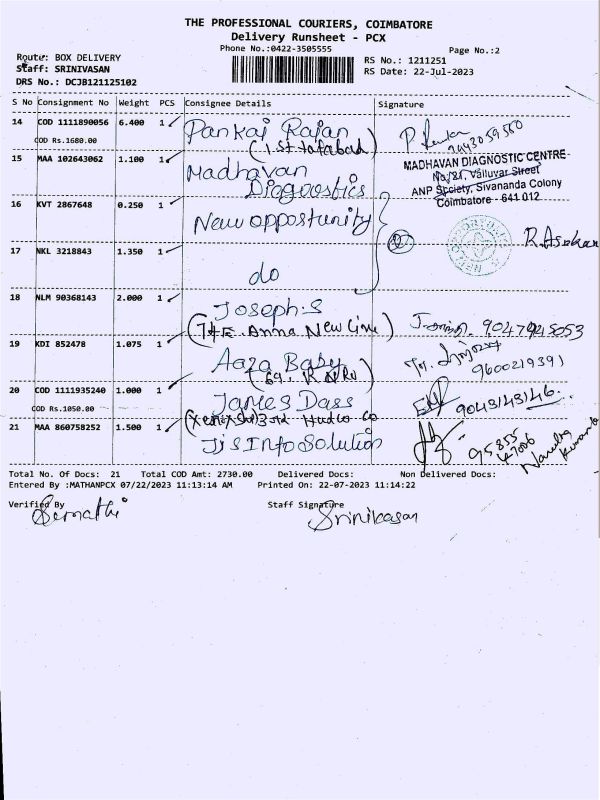 THE PROFESSIONAL COURIERS, COIMBATORE
Delivery Runsheet - PCX
Phone No.:0422-3505555
Page No.:2
Route: BOX DELIVERY
Staff: SRINIVASAN
DRS No.: DCJB121125102
RS No.: 1211251
RS Date: 22-Jul-2023
S No Consignment No Weight PCS Consignee Details Signature
14 COD 1111890056 6.400 1 Pankaj Rajan
COD Rs.1680.00
15 MAA 102643062 1.100 1 Madhavan
Diagnostics
MADHAVAN DIAGNOSTIC CENTRE
Valluvar Street
ANP Society, Sivananda Colony
Coimbatore - 641 012
16 KVT 2867648 0.250 1 New opportunity
17 NKL 3218843 1.350 1 do
R. Asokan
18 NLM 90368143 2.000 1 Joseph.S
(74E. Anna New Line)
19 KDI 852478 1.075 1 Baby
9600219391
20 COD 1111935240 1.000 1 James Dass
COD Rs.1050.00
9043143146.
21 MAA 860758252 1.500 1 JisInfoSolution
95855
47006
Total No. Of Docs: 21 Total COD Amt: 2730.00 Delivered Docs: Non Delivered Docs:
Entered By :MATHANPCX 07/22/2023 11:13:14 AM Printed On: 22-07-2023 11:14:22
Verified By Staff Signature
Srinivasan